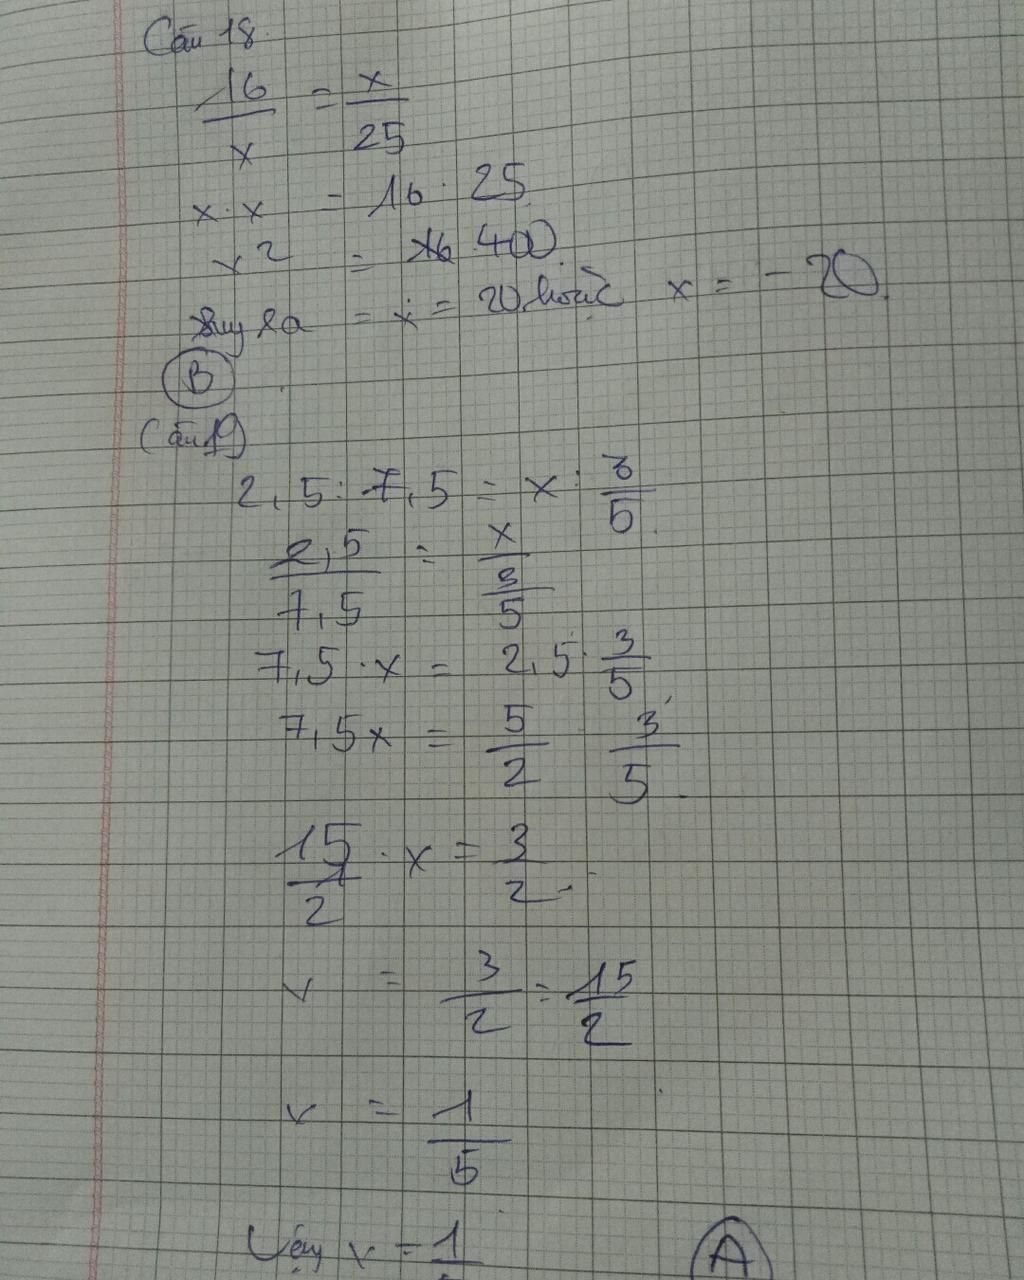 Câu 18.
16/x = x/25
x . x = 16 . 25
x² = 400.
Suy ra = x = 20 hoặc x = - 20.
B
Câu 19
2,5 : 7,5 = x : 3/5
2,5/7,5 = x/(3/5)
7,5 . x = 2,5 . 3/5
7,5x = 5/2 . 3/5.
15/2 . x = 3/2.
x = 3/2 : 15/2
x = 1/5
Vậy x = 1/
A